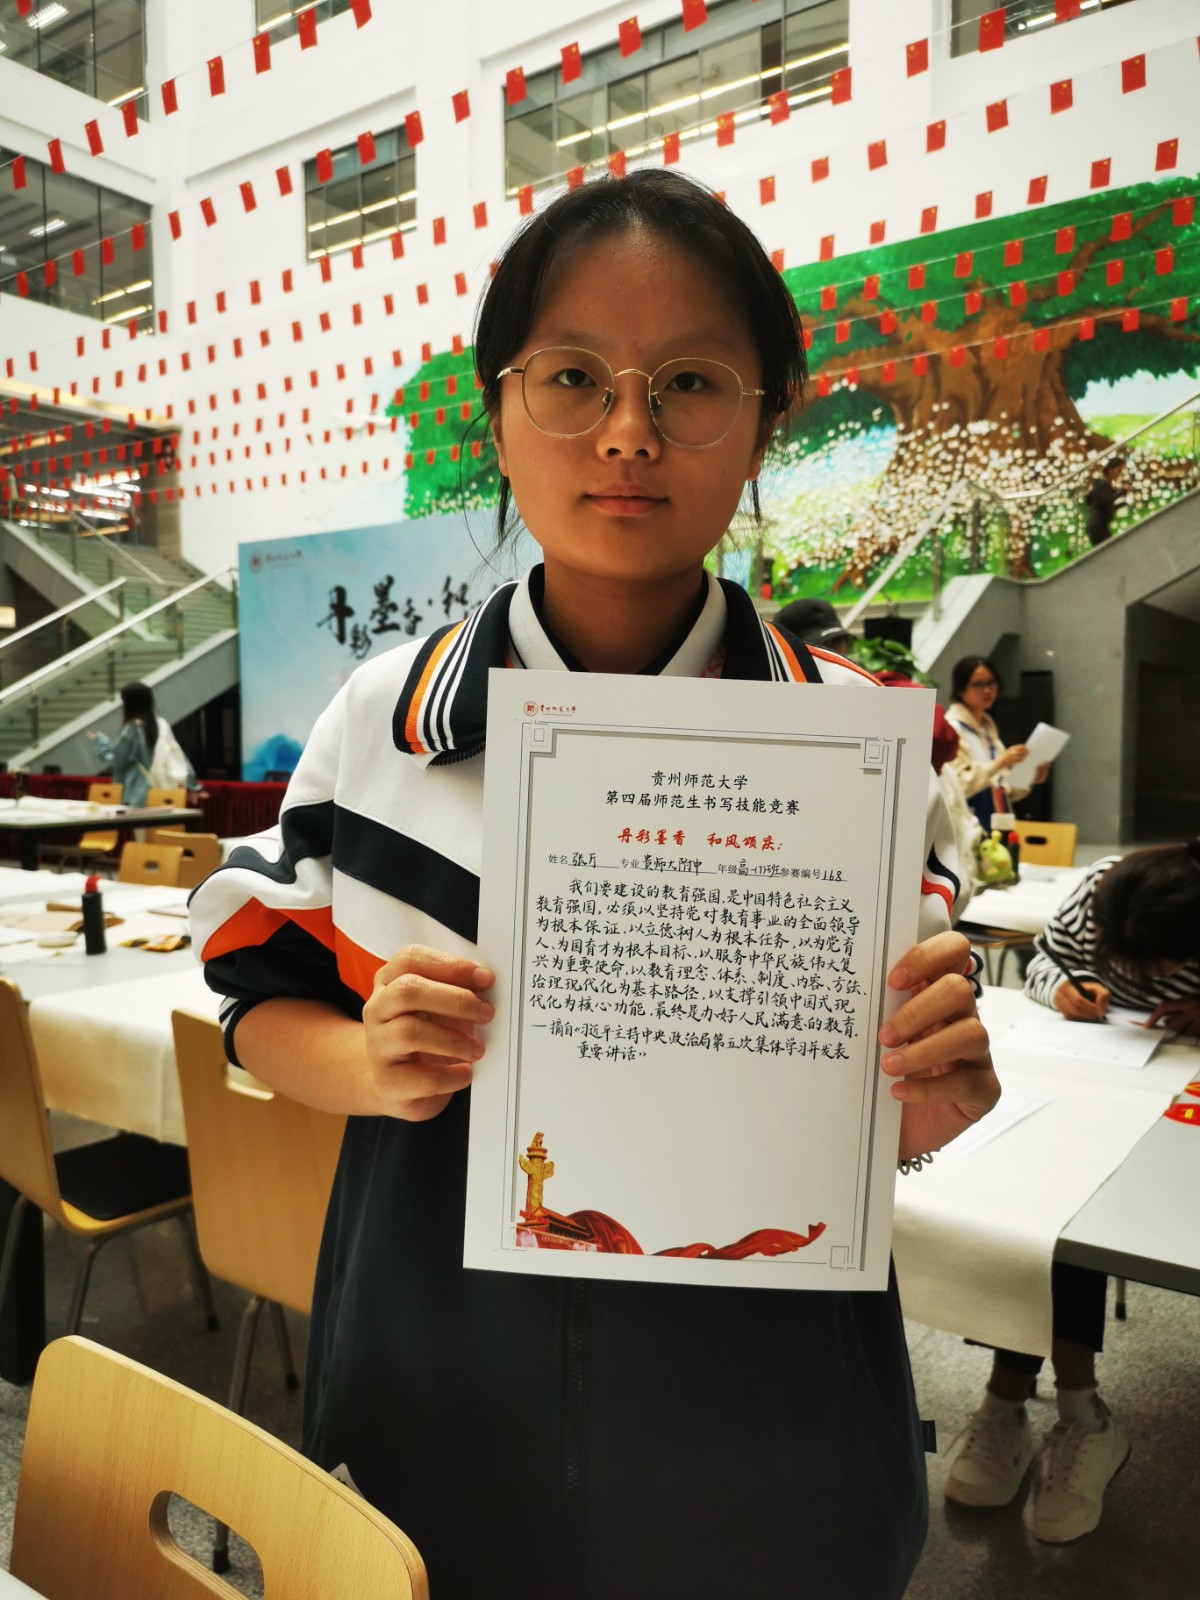 贵州师范大学
丹彩墨香·和
贵州师范大学
贵州师范大学
第四届师范生书写技能竞赛
丹彩墨香 和风颂庆：
姓名 张斤 专业 贵师大附中 年级 高一(7)班 参赛编号 168
我们要建设的教育强国，是中国特色社会主义
教育强国，必须以坚持党对教育事业的全面领导
为根本保证，以立德树人为根本任务，以为党育
人、为国育才为根本目标、以服务中华民族伟大复
兴为重要使命，以教育理念、体系、制度、内容、方法、
治理现代化为基本路径，以支撑引领中国式现
代化为核心功能，最终是办好人民满意的教育。
—摘自《习近平主持中央政治局第五次集体学习并发表
重要讲话》